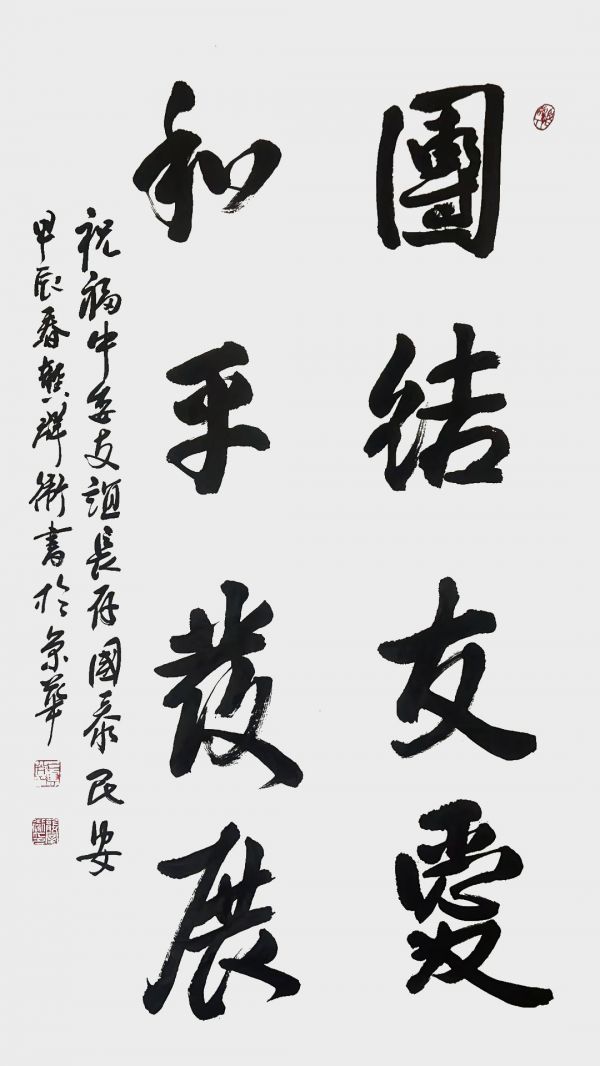 團結友愛
和平發展
祝福中委友誼長存國泰民安
甲辰春 衛書於京華